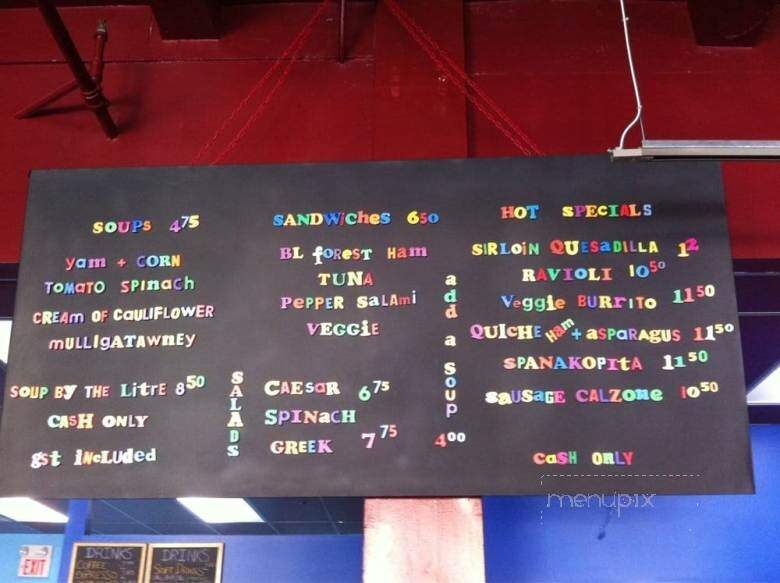 SOUPS 4 75
yam + CORN
TOMaTO SPinaCh
CREAm OF CaULIFLOWER
mULLIgATAWnEy
SOUP BY THE LitrE 8 50
CASH ONLY
gst incLUded
SANDWiCheS 6 50
BL fOREST Ham
TUNA
PePPER SaLAmi
VEGGiE
SALADS
CAESaR 6 75
SPINaCH
GREEK 7 75
add a SOUP
4 00
HOT SPECIALS
SIRLOiN QUESaDILLA 12
RAVIOLI 10 50
Veggie BURrITO 11 50
QUICHE Ham + aSPaRAGUS 11 50
SPANAKOPItA 11 50
SaUSaGE CALZOne 10 50
CaSH ONLY
menupix
EXIT
DRINKS
COFFEE
ESPRESSO
DRINKS
SOFT DRINKS